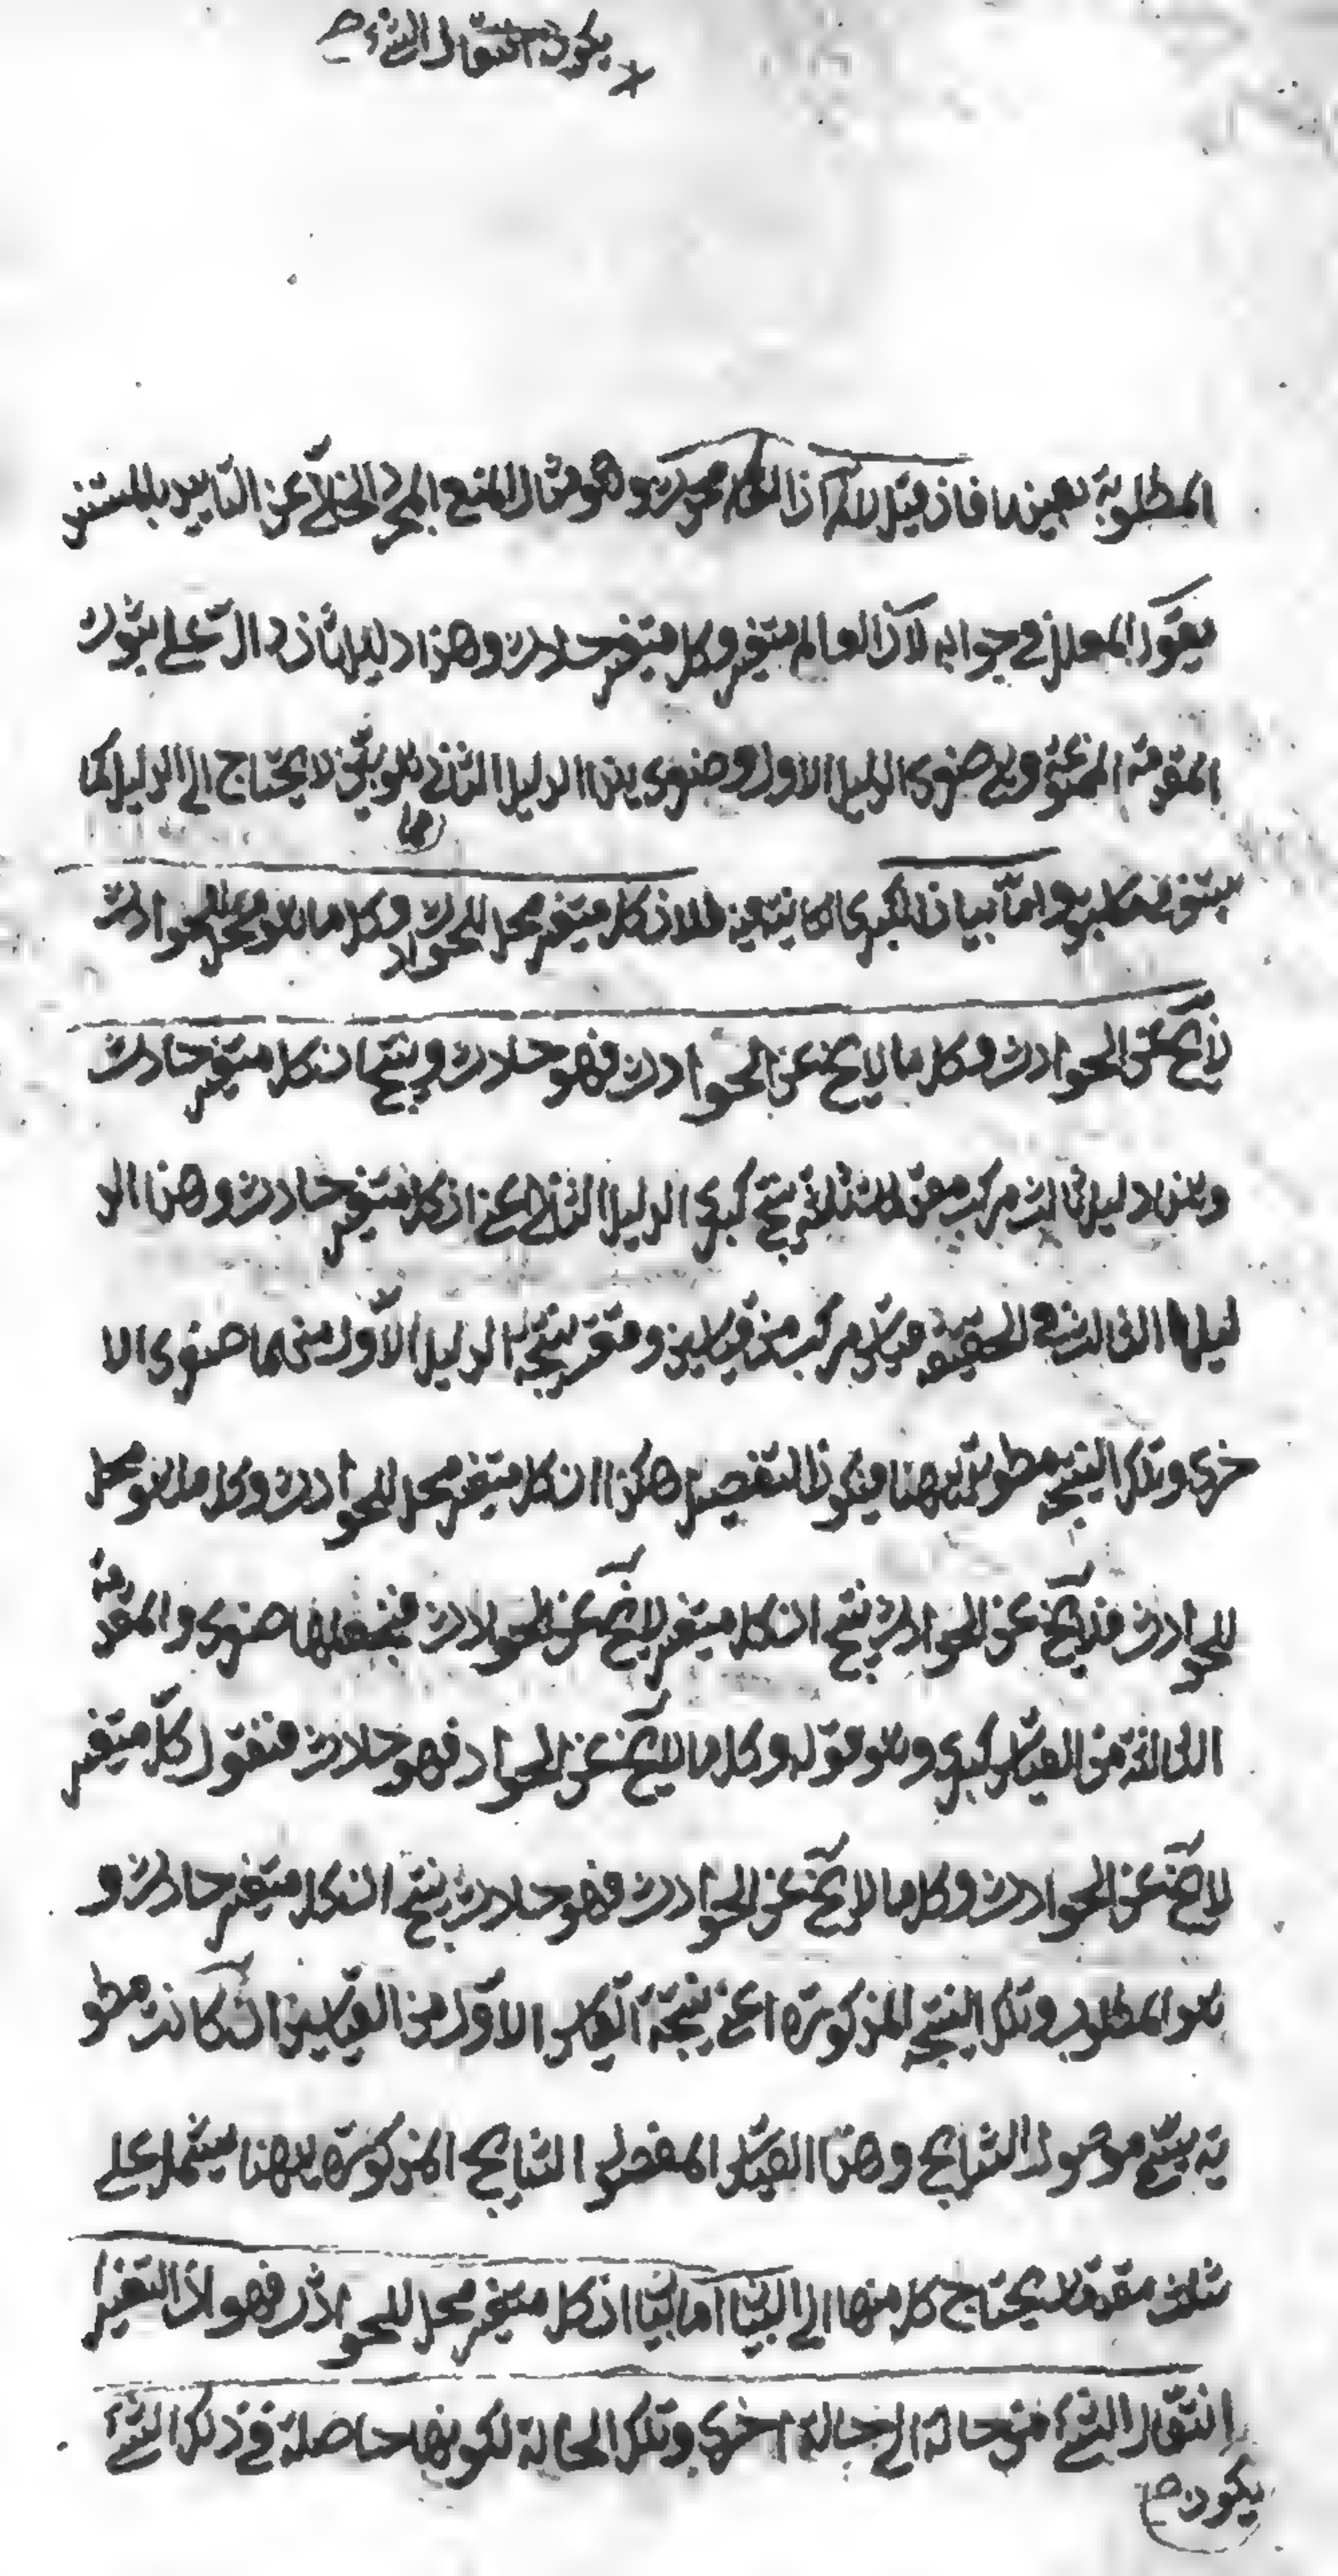 يكون انتقال الشئ صح
المطلوبة بعينها فان قيل لانم ان العالم وهو مثال المنع المجرد الخالي عن التأييد بالمستند
يقول المعلل في جوابه لان العالم متغير وكل متغير حادث وهذا دليل ثان دال على ثبوت
المقدمة الممنوعة وهي صغرى الدليل الاول وصغرى هذا الدليل الثاني بديهي لا يحتاج الى الدليل كما
واما بيان الكبرى فلان كل متغير محل للحوادث وكل ما هو محل للحوادث
لايخ عن الحوادث وكل ما لايخ عن الحوادث فهو حادث وينتج ان كل متغير حادث
وهذا دليل ثالث مركب من مقدمات ثلثة ينتج كبرى الدليل الثاني اعني ان كل متغير حادث وهذا الد
ليل الثالث في الحقيقة قياس مركب من قياسين نتيجة الدليل الاول منهما صغرى الا
خرى وتلك النتيجة مطوية ههنا فيكون التفصيل هكذا ان كل متغير محل للحوادث وكل ما هو محل
للحوادث فلايخ عن الحوادث ينتج ان كل متغير لايخ عن الحوادث فنجعلها صغرى والمقدمة
الثالثة من القياس كبرى وهو قوله وكل ما لايخ عن الحواد فهو حادث فنقول كل متغير
لايخ عن الحوادث وكل ما لايخ عن الحوادث فهو حادث ينتج ان كل متغير حادث و
هو المطلوب وتلك النتيجة المذكورة اعني نتيجة القياس الاول من القياسين ان كانت مطو
ية يسمى مفصول النتايج وهذا القياس المفصول النتايج المذكورة ههنا يشتمل على
ثلث مقدمات يحتاج كل منها الى البيان اما بيان ان كل متغير محل للحوادث فهو ان التغير
انتقال الشئ من حالة الى حالة اخرى وتلك الحالة لكونها حاصلة في ذلك الشئ
يكون صح